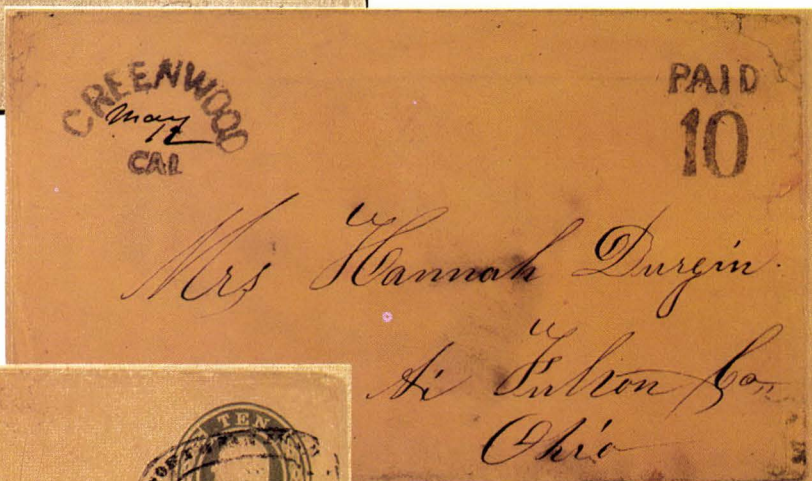 GREENWOOD
May 12
CAL
PAID
10
Mrs Hannah Durgin.
Ai Fulton Con
Ohio
TEN